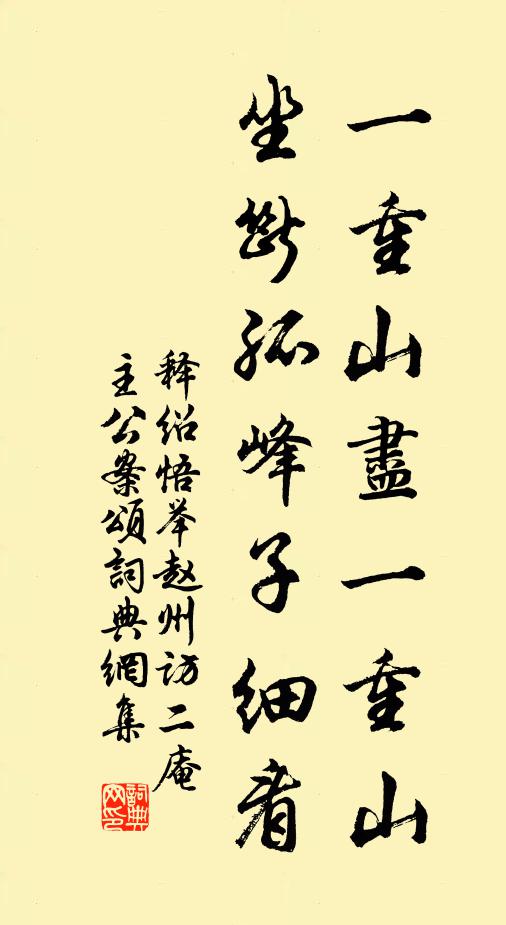 一重山盡一重山
坐斷孤峰子細看
释绍悟举赵州访二庵
主公案頌詞典網集
詞典
网印